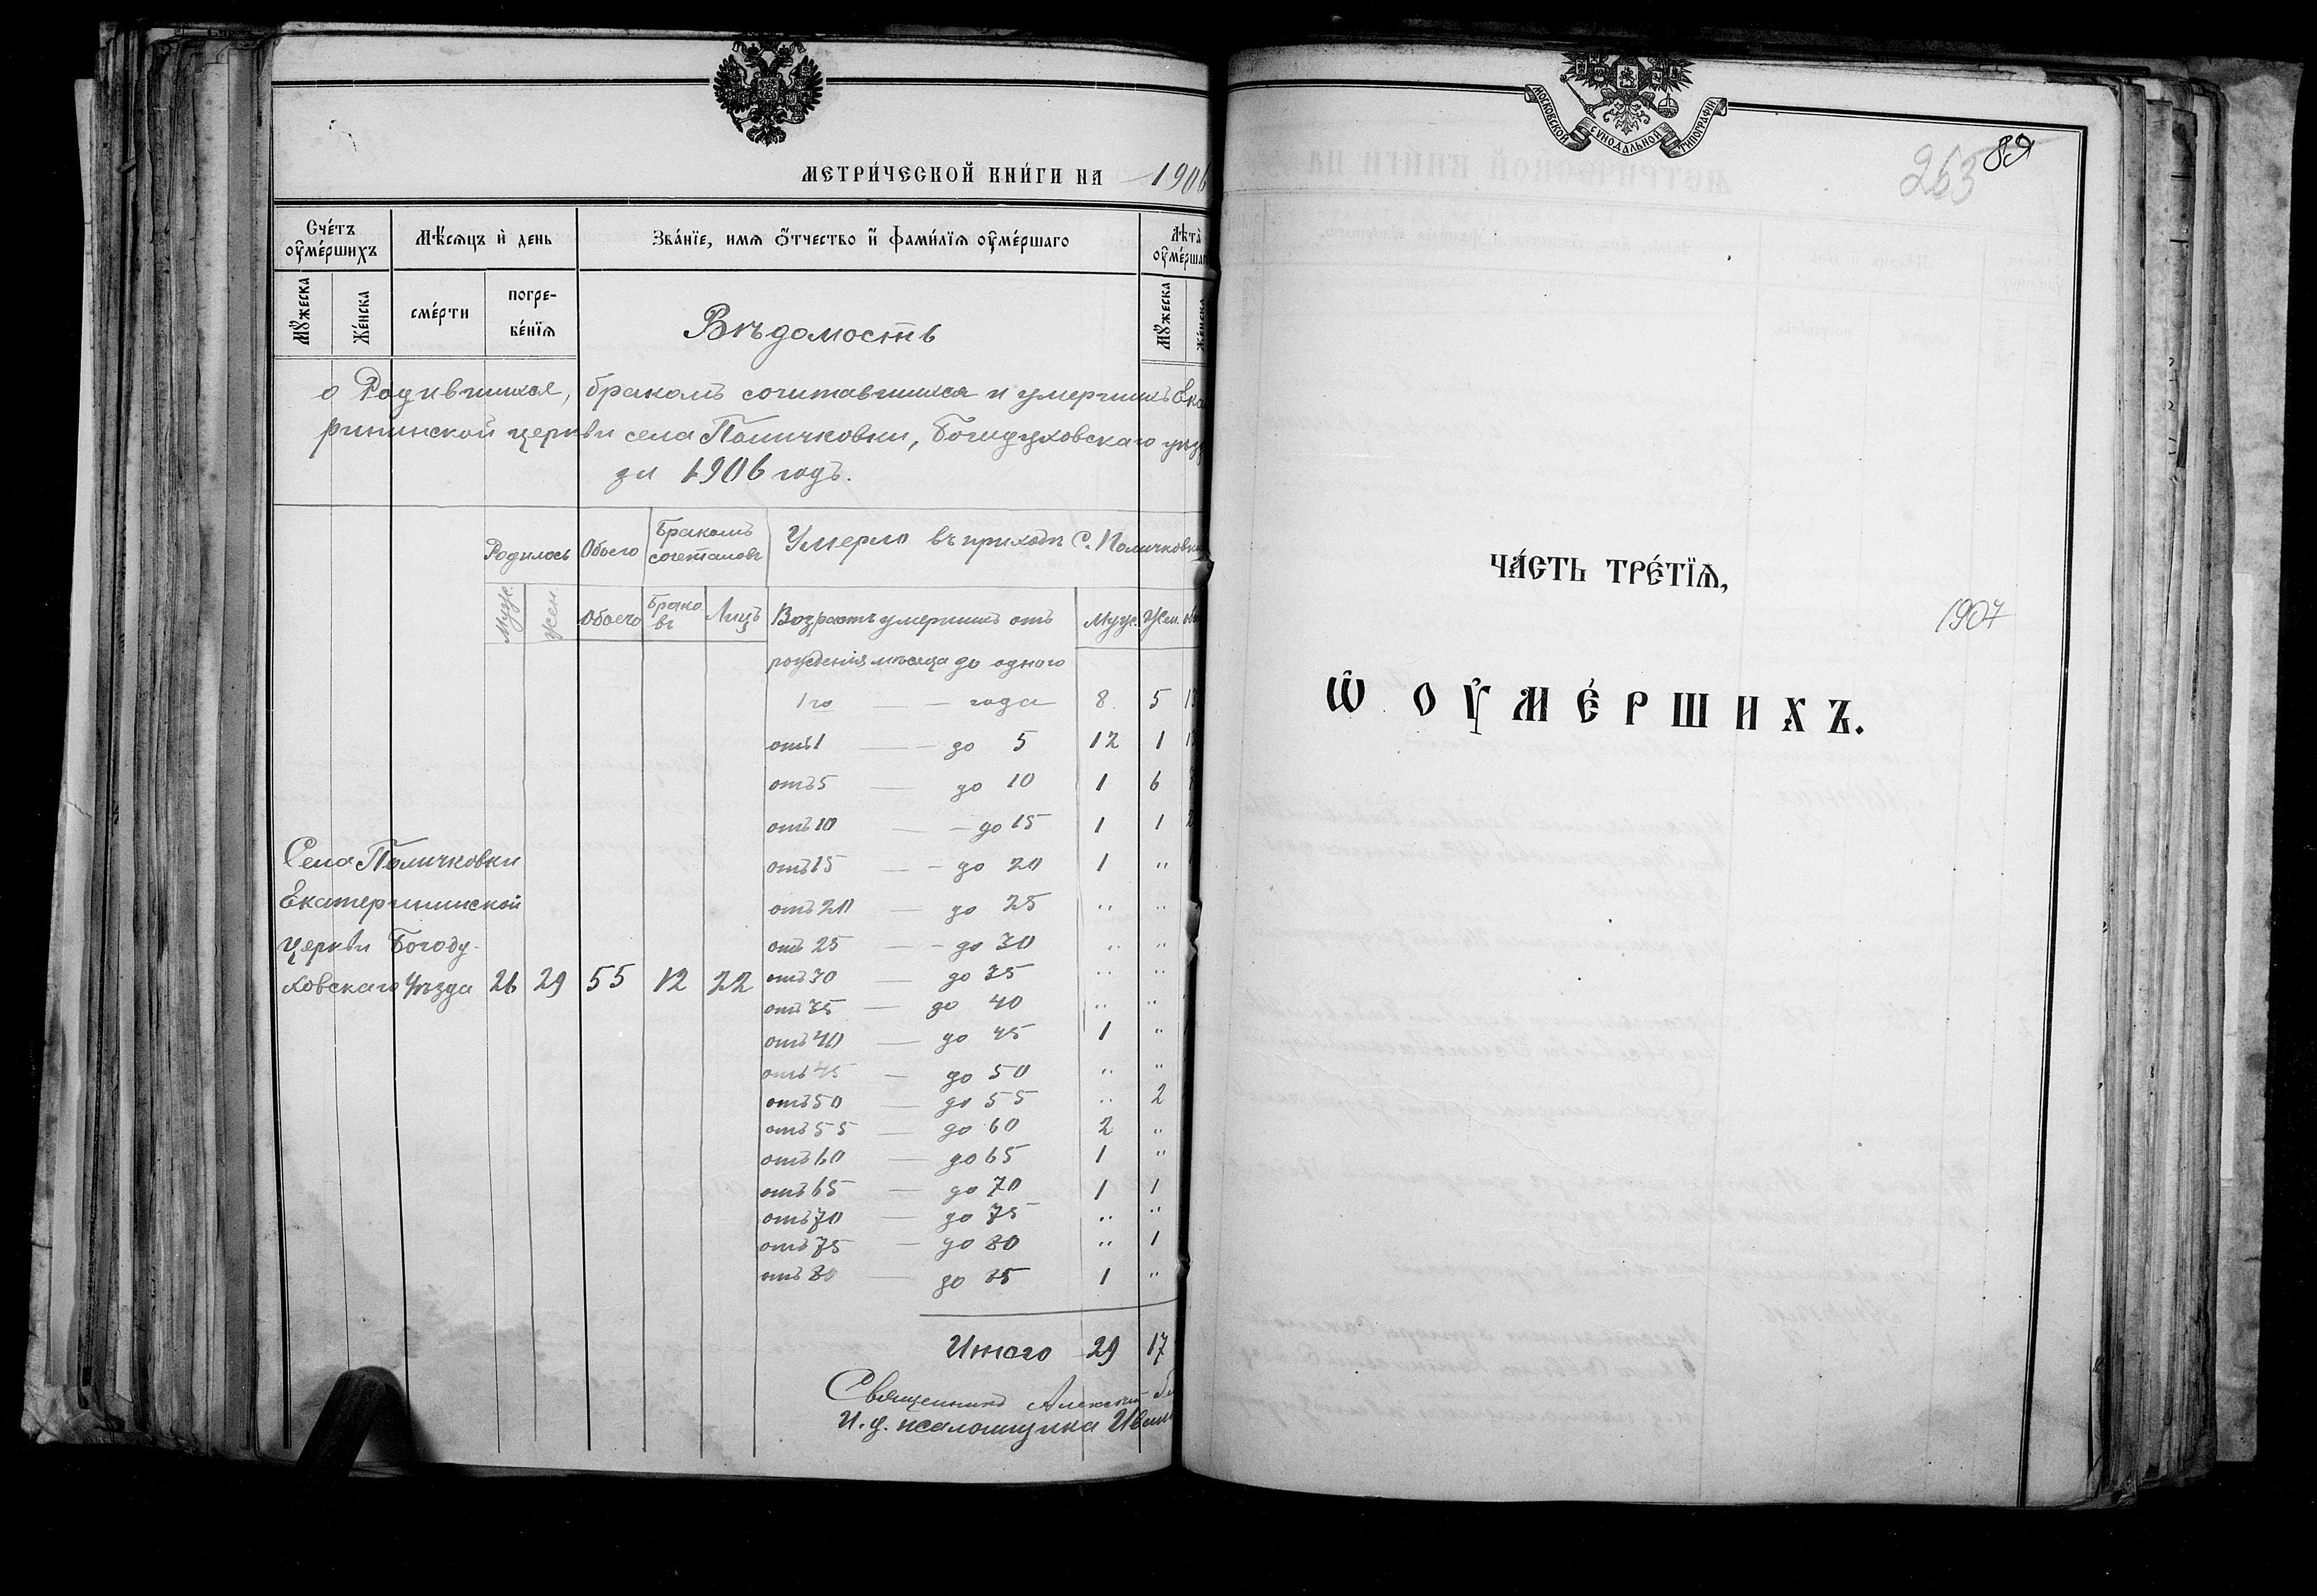 МЕТРИ́ЧЕСКОЙ КНИ́ГИ НА 1906
Сче́тъ оу҆ме́ршихъ
Мѣ́сяцъ и҆ день
Зва́нїе, имя ѻ҆́тчество и҆ фами́лїя оу҆ме́ршаго
Лѣта̀ оу҆ме́ршаг
Мꙋжеска
Же́нска
сме́рти
погре-
бе́нїя
Мꙋжеска
Же́нска
Вѣдомость
о Родившихся, бракомъ сочитавшихся и умершихъ Ека
рининской церкви села Поличковки, Богодуховскаго уѣзд
за 1906 годъ.
Родилось Обоего Бракомъ сочеталось Умерло въ приходѣ С. Поличковки
Муж. Жен. Обоего Брако въ Лицъ Возрастъ умершихъ отъ Муж. Жен. обо
рожденія мѣсяца до одного
1го — — года 8. 5 13
отъ 1 — — до 5 12 1 13
отъ 5 — до 10 1 6 7
отъ 10 — — до 15 1 1 2
отъ 15 — — до 20 1 "
отъ 20 — до 25 " "
отъ 25 — — до 30 " "
Села Поличковки
Екатерининской
церкви Богоду-
ховскаго Уѣзда 26 29 55 12 22
отъ 30 — до 35 " "
отъ 35 — до 40 " "
отъ 40 — до 45 1 "
отъ 45 — до 50 " "
отъ 50 — до 55 " 2
отъ 55 — до 60 2 "
отъ 60 — до 65 1 "
отъ 65 — до 70 1 1
отъ 70 — до 75 " "
отъ 75 — до 80 " 1
отъ 80 — до 85 1 "
Итого 29 17
Священникъ Алексій
И. д. псаломщика Иван
МОСКОВСКОЙ СУНОДАЛЬНОЙ ТИПОГРАФІИ
263
89
ЧА́СТЬ ТРЕ́ТЇЯ,
1907
Ѡ҆ ОУ҆МЕ́РШИХЪ.